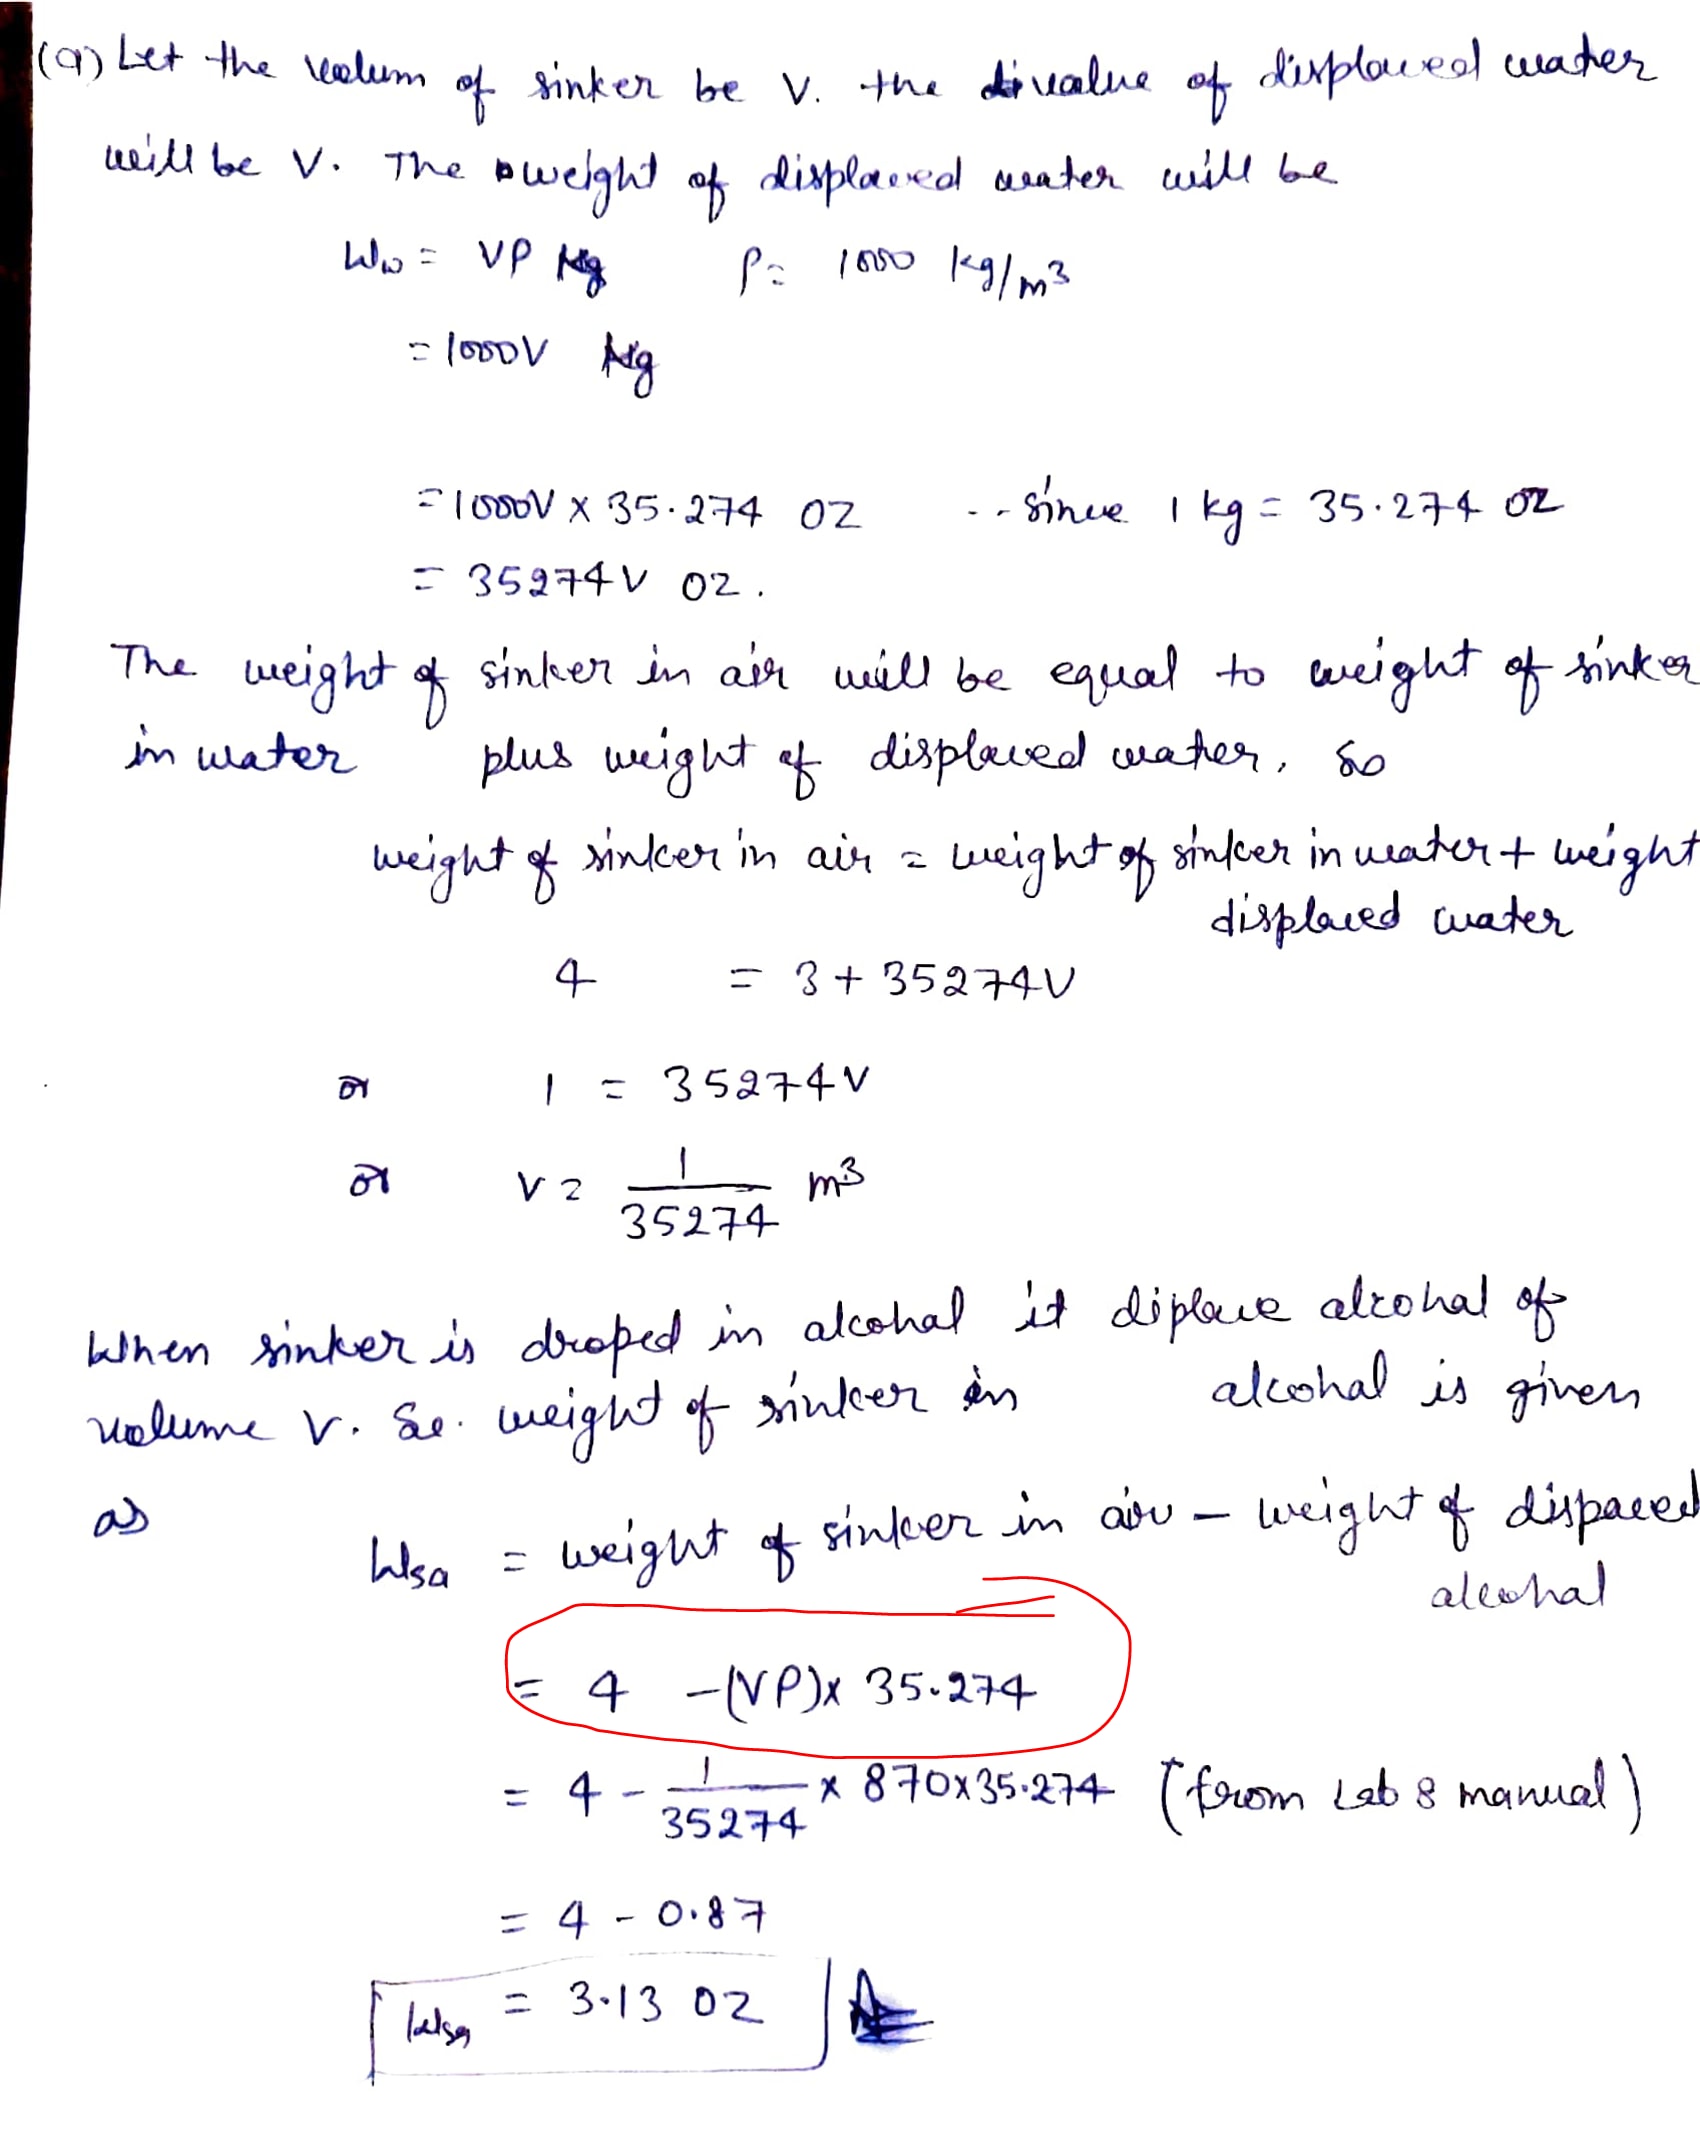 (a) Let the volum of sinker be V. the value of displaced water
will be V. The weight of displaced water will be
Ww = Vρ kg ρ = 1000 kg/m³
= 1000V kg
= 1000V × 35.274 oz -- since 1 kg = 35.274 oz
= 35274V oz.
The weight of sinker in air will be equal to weight of sinker
in water plus weight of displaced water. so
weight of sinker in air = weight of sinker in water + weight
displaced water
4 = 3 + 35274V
or 1 = 35274V
or V = 1/35274 m³
When sinker is droped in alcohal it diplace alcohal of
volume V. So. weight of sinker in alcohal is given
as
Wsa = weight of sinker in air - weight of dispaced
alcohal
= 4 - (Vρ) × 35.274
= 4 - 1/35274 × 870 × 35.274 (from Lab 8 manual)
= 4 - 0.87
Wsa = 3.13 oz